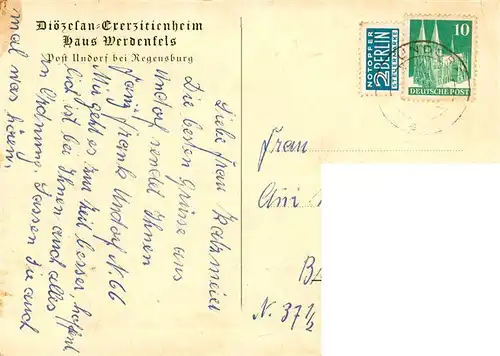 Diözesan-Exerzitienheim
Haus Werdenfels
Post Undorf bei Regensburg
NOTOPFER
2 BERLIN
STEUERMARKE
10
DEUTSCHE POST
UNDORF
Liebe Frau Katzmeier
Die besten Grüsse aus
Undorf sendet Ihnen
Frank Undorf N. 66
Mir geht es zur Zeit besser, hoffent
lich ist bei Ihnen auch alles
in Ordnung. Lassen Sie auch
mal was hören.
Frau
N. 37 1/2